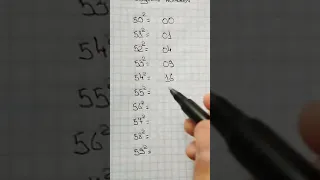 50² = 00
51² = 01
52² = 04
53² = 09
54² = 16
55² =
56² =
57² =
58² =
59² =
56²
57